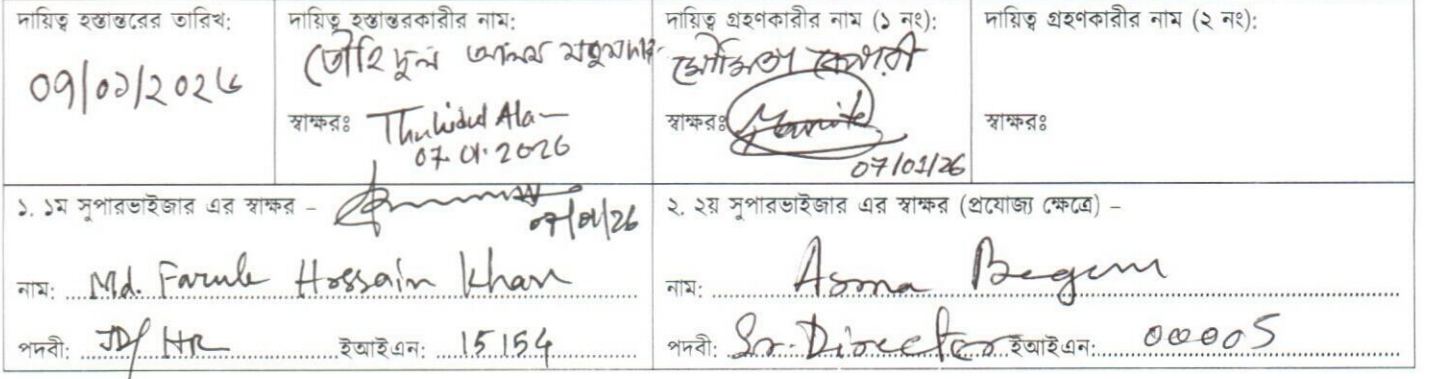 দায়িত্ব হস্তান্তরের তারিখ:
09/01/2026
দায়িত্ব হস্তান্তরকারীর নাম:
তৌহিদুল আলম মজুমদার
স্বাক্ষরঃ Thuhidul Ala
07.01.2026
দায়িত্ব গ্রহণকারীর নাম (১ নং):
স্বাক্ষরঃ
07/01/26
দায়িত্ব গ্রহণকারীর নাম (২ নং):
স্বাক্ষরঃ
১. ১ম সুপারভাইজার এর স্বাক্ষর –
07/01/26
নাম: Md. Faruk Hossain Khan
পদবী: JD/HR ইআইএন: 15154
২. ২য় সুপারভাইজার এর স্বাক্ষর (প্রযোজ্য ক্ষেত্রে) –
নাম: Asma Begum
পদবী: Sr. Director ইআইএন: 00005